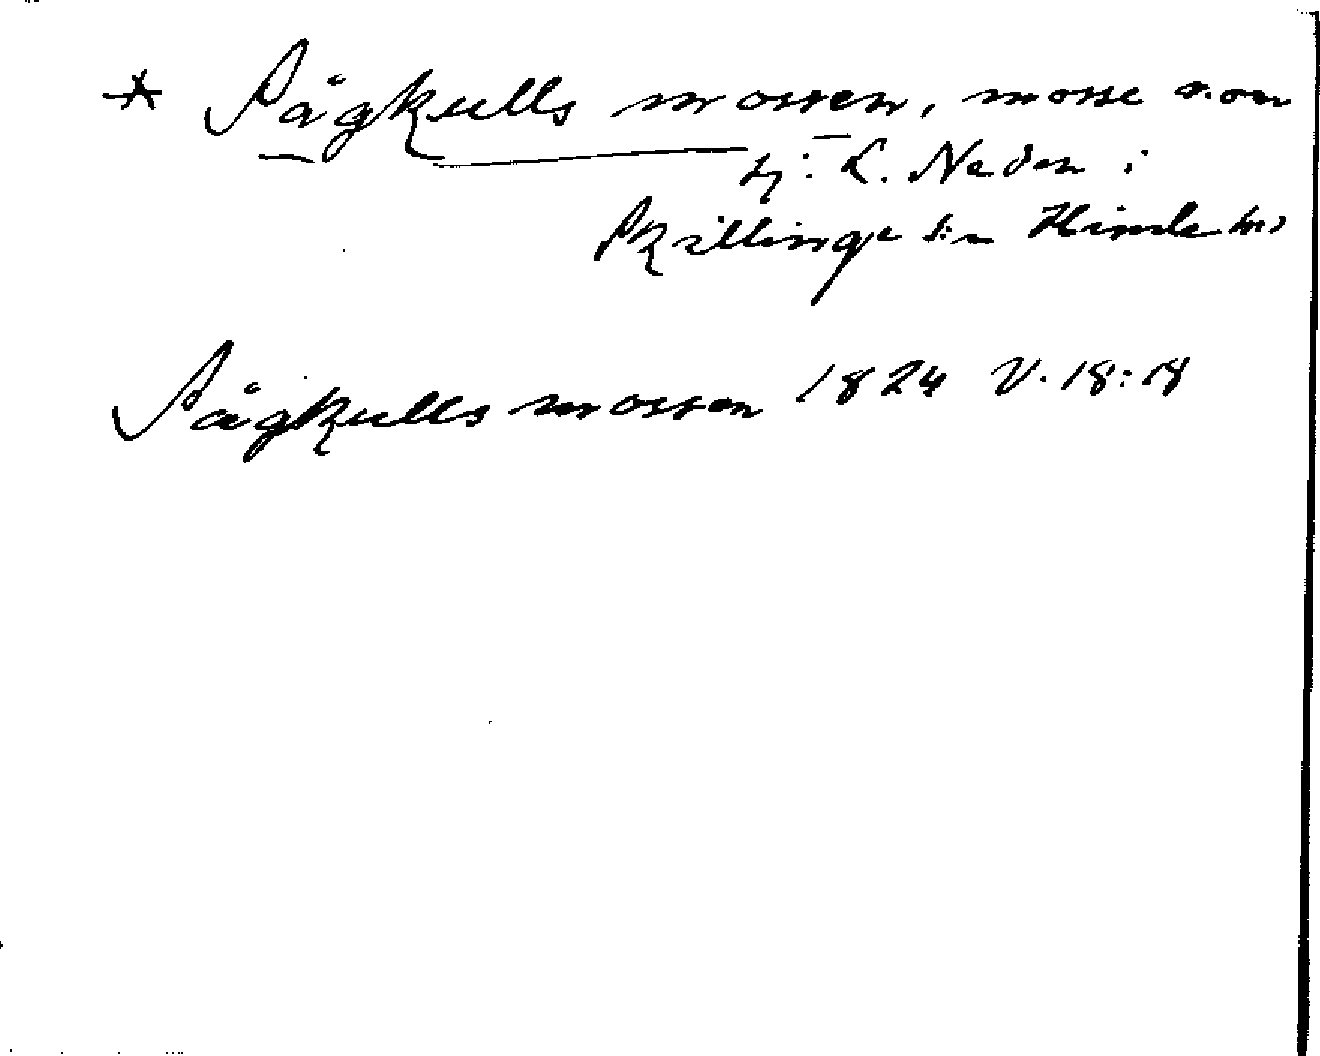 * Sågkulls mossen, mosse s. om
hj: L. Neden i
Skällinge sn Himle hd
Sågkulls mossen 1824 V. 18:18